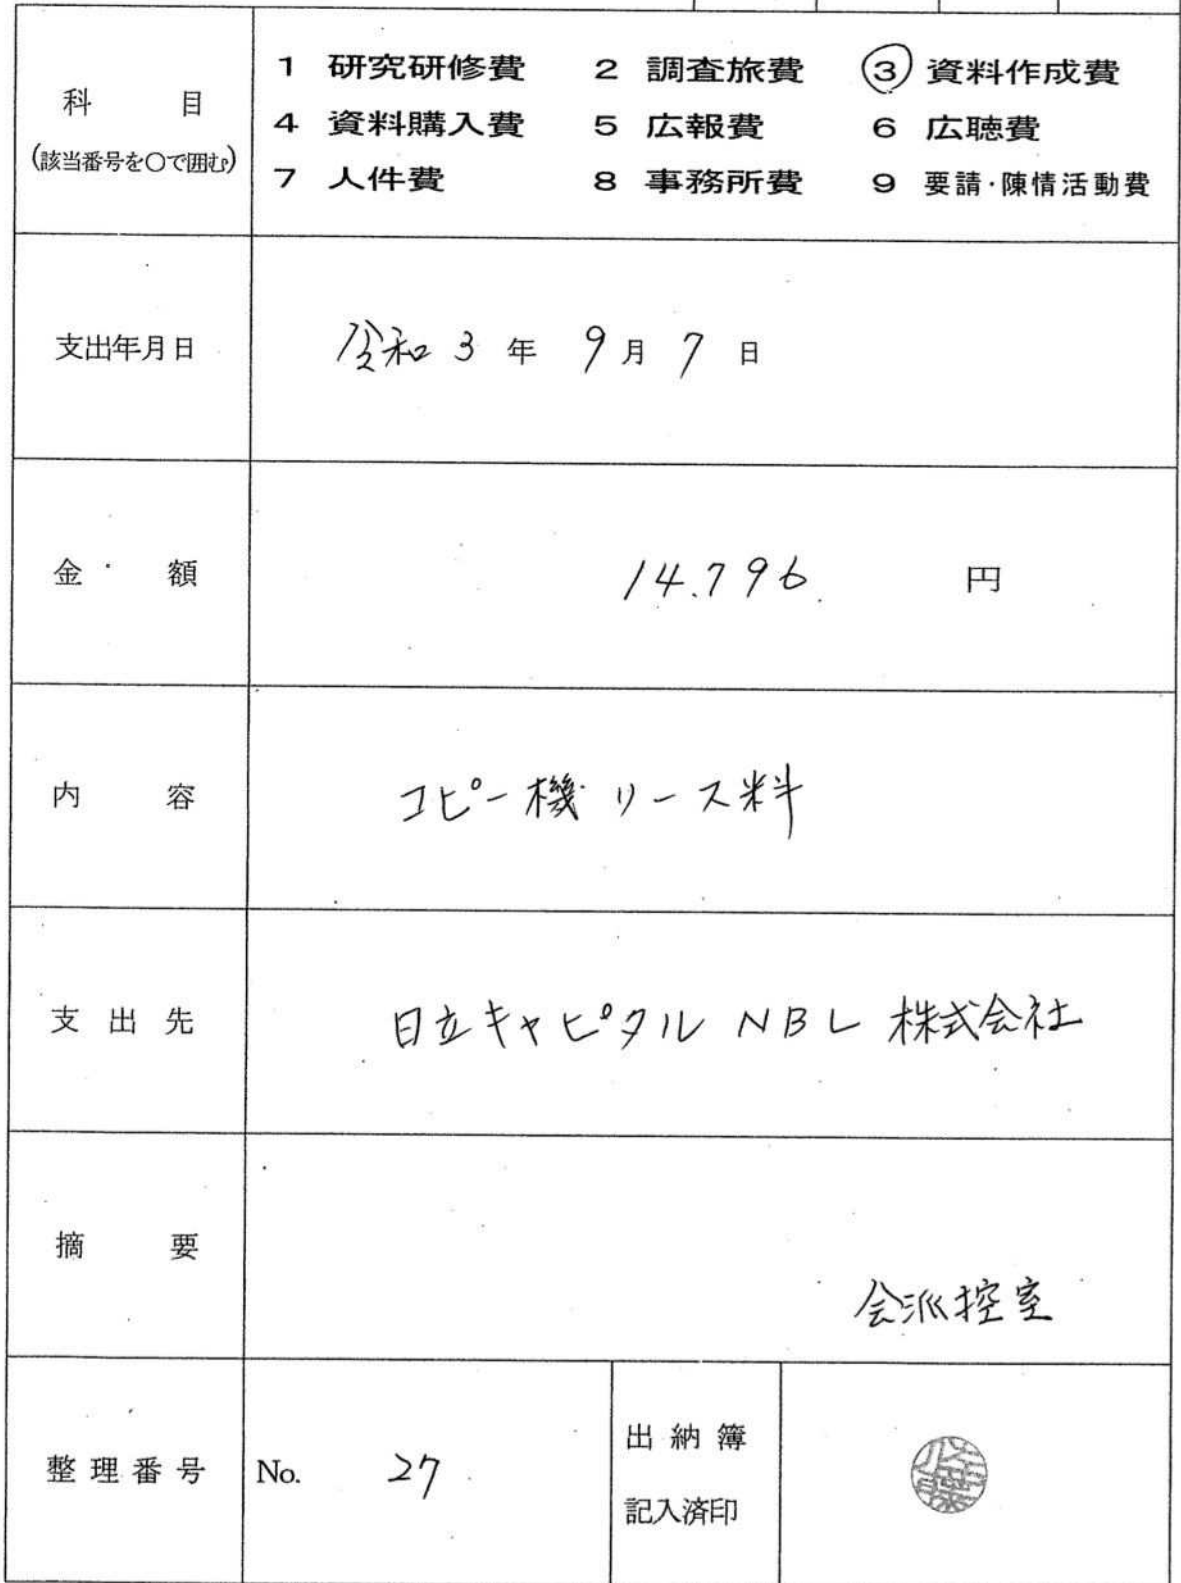 科 目
(該当番号を○で囲む)
1 研究研修費 2 調査旅費 3 資料作成費
4 資料購入費 5 広報費 6 広聴費
7 人件費 8 事務所費 9 要請・陳情活動費
支出年月日 令和 3 年 9 月 7 日
金 額 14.796 円
内 容 コピー機 リース料
支 出 先 日立キャピタル NBL 株式会社
摘 要
会派控室
整 理 番 号 No. 27
出 納 簿
記入済印